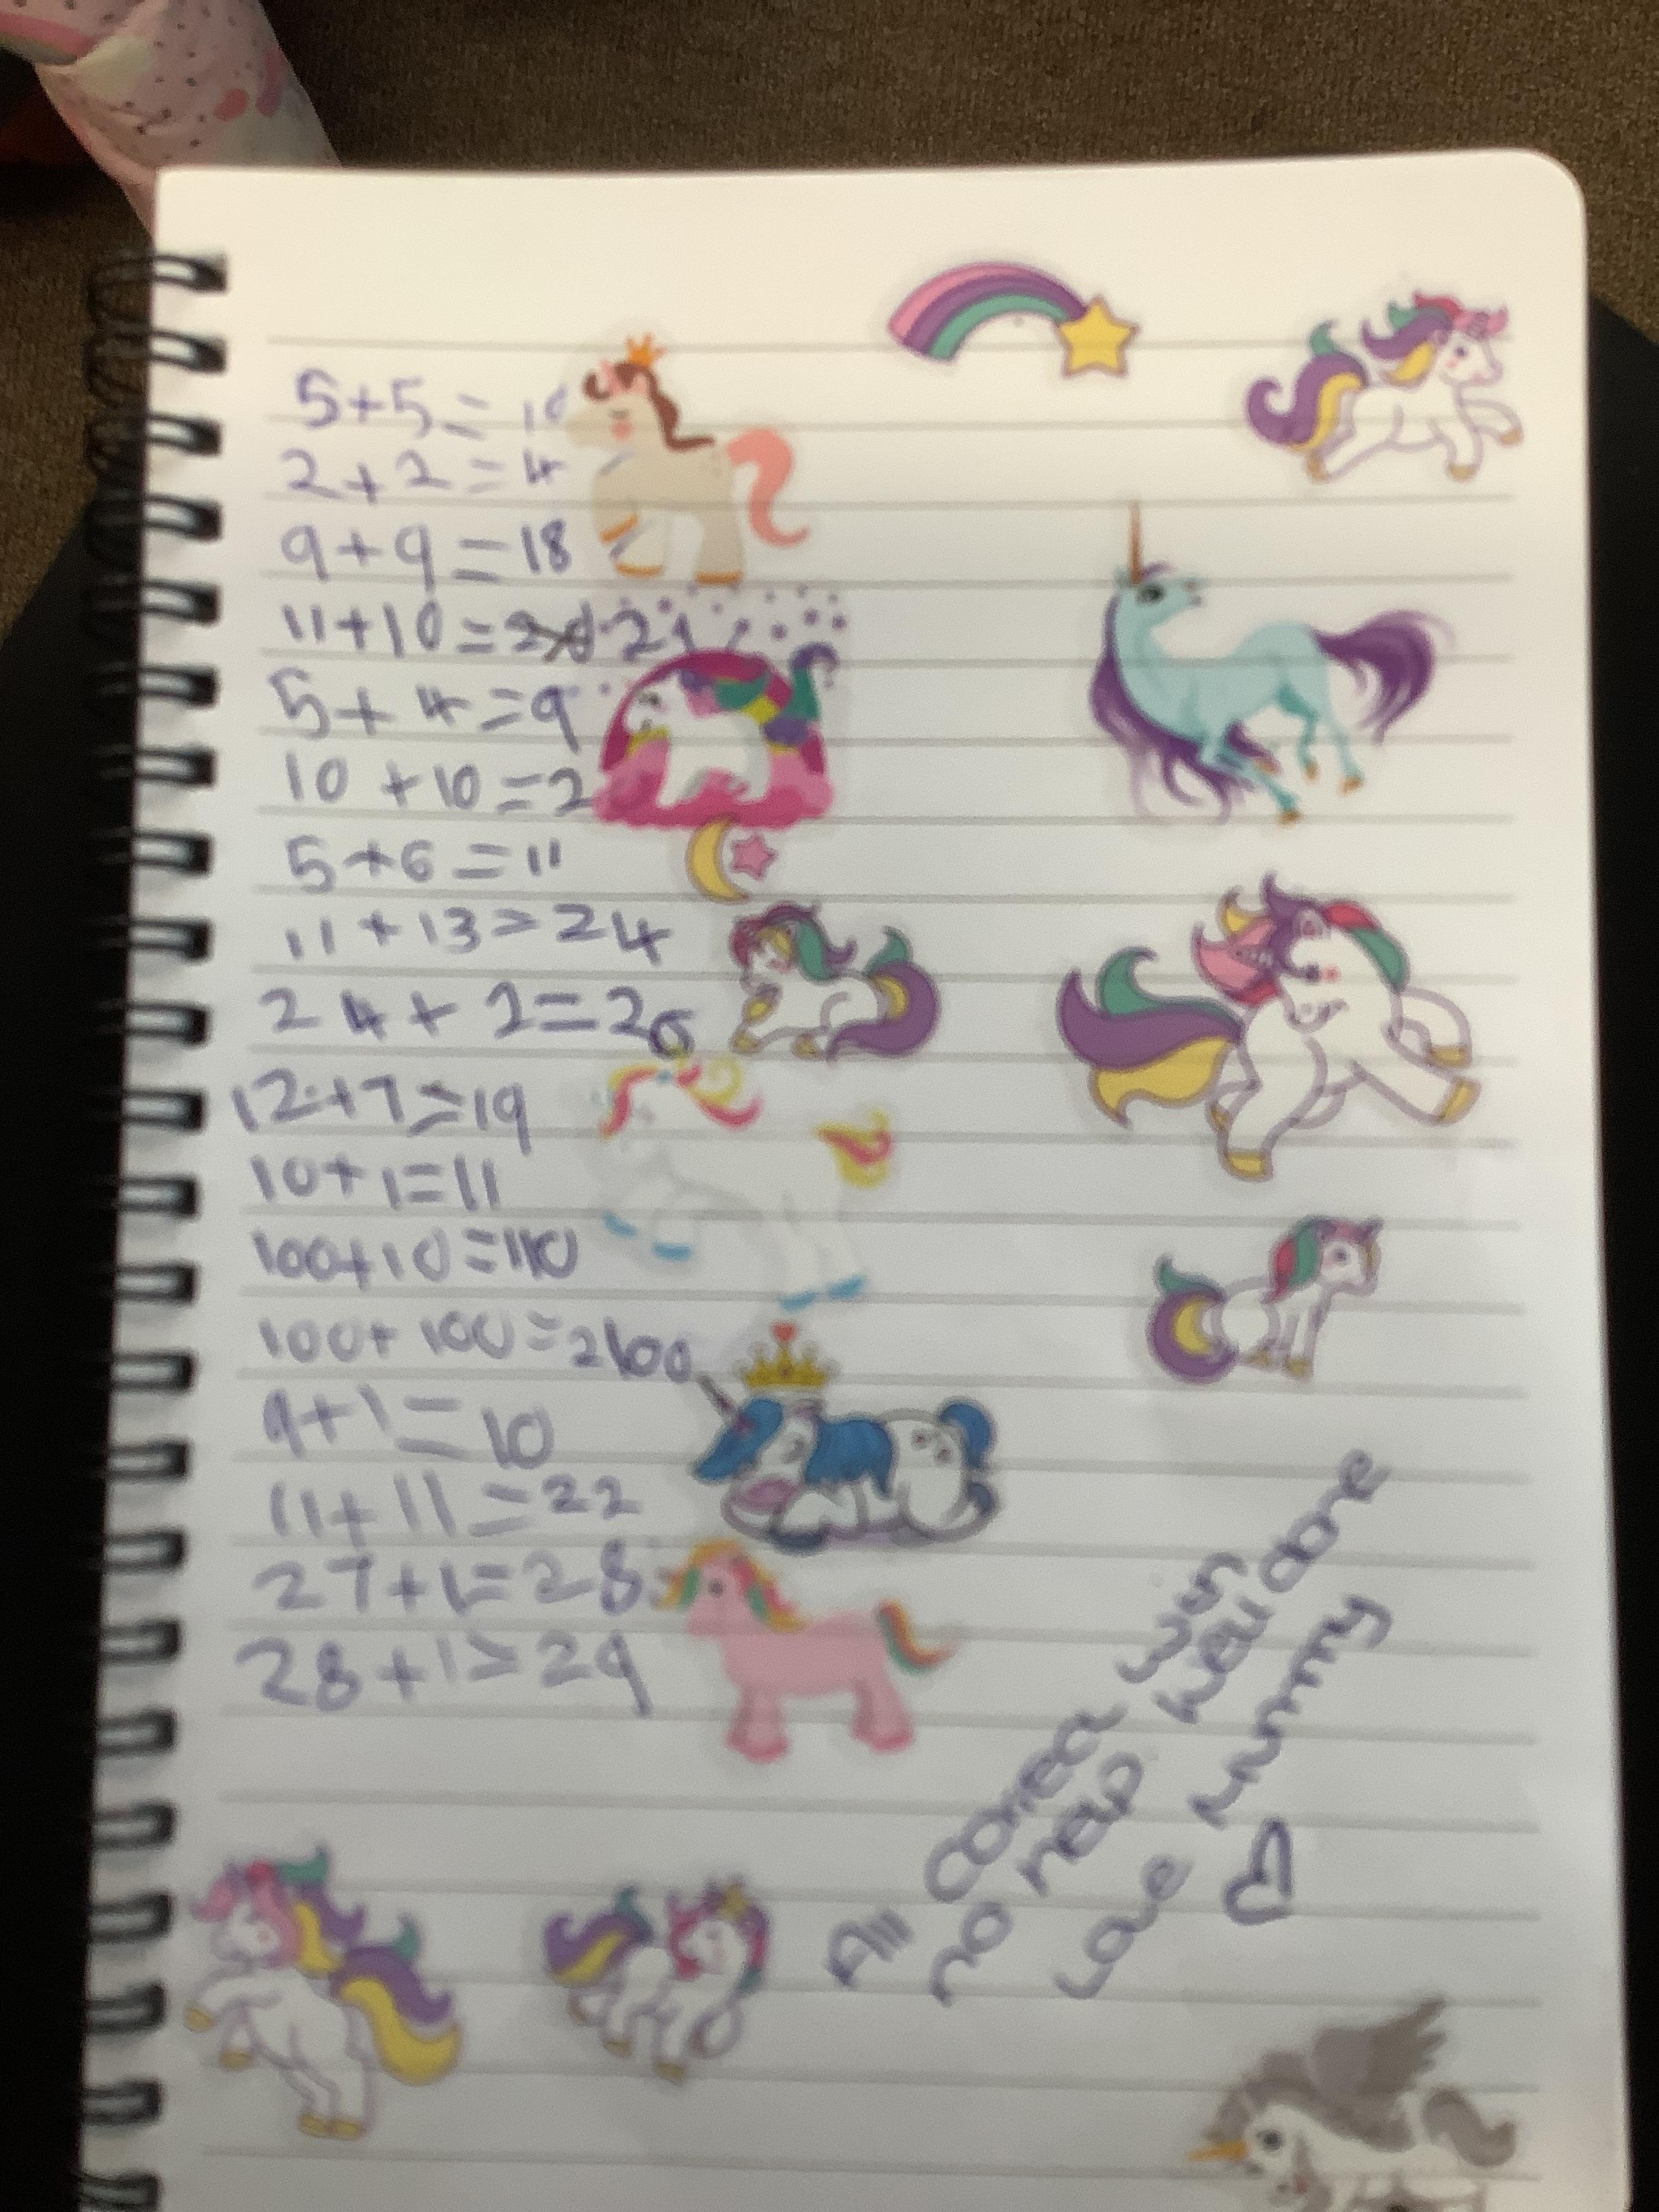 5+5=10
2+2=4
9+9=18
11+10=20 21
5+4=9
10+10=2
5+6=11
11+13=24
24+2=26
12+7=19
10+1=11
100+10=110
100+100=2100
9+1=10
11+11=22
27+1=28
28+1=29
All correct with
no help. well done
Love Mummy